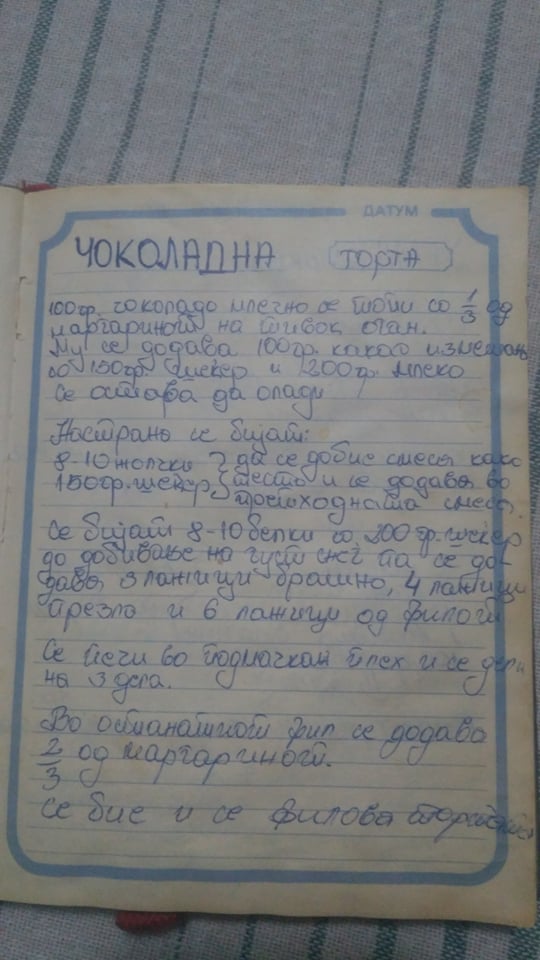 ДАТУМ
ЧОКОЛАДНА ТОРТА
100гр. чоколадо млечно се топи со 1/3 од
маргаринот на тивок оган.
Му се додава 100гр. какао измешан
со 150гр шекер и 200гр. млеко
се остава да олади
Настрано се бијат:
8-10 жолчки } да се добие смеса како
150гр. шекер } тесто и се додава во
претходната смеса.
Се бијат 8-10 белки со 200 гр. шекер
до добивање на густ снег па се до-
дава 3 лажици брашно, 4 лажици
презла и 6 лажици од филот
Се печи во подмачкан плех и се дели
на 3 дела.
Во останатиот фил се додава
2/3 од маргаринот.
Се бие и се филова